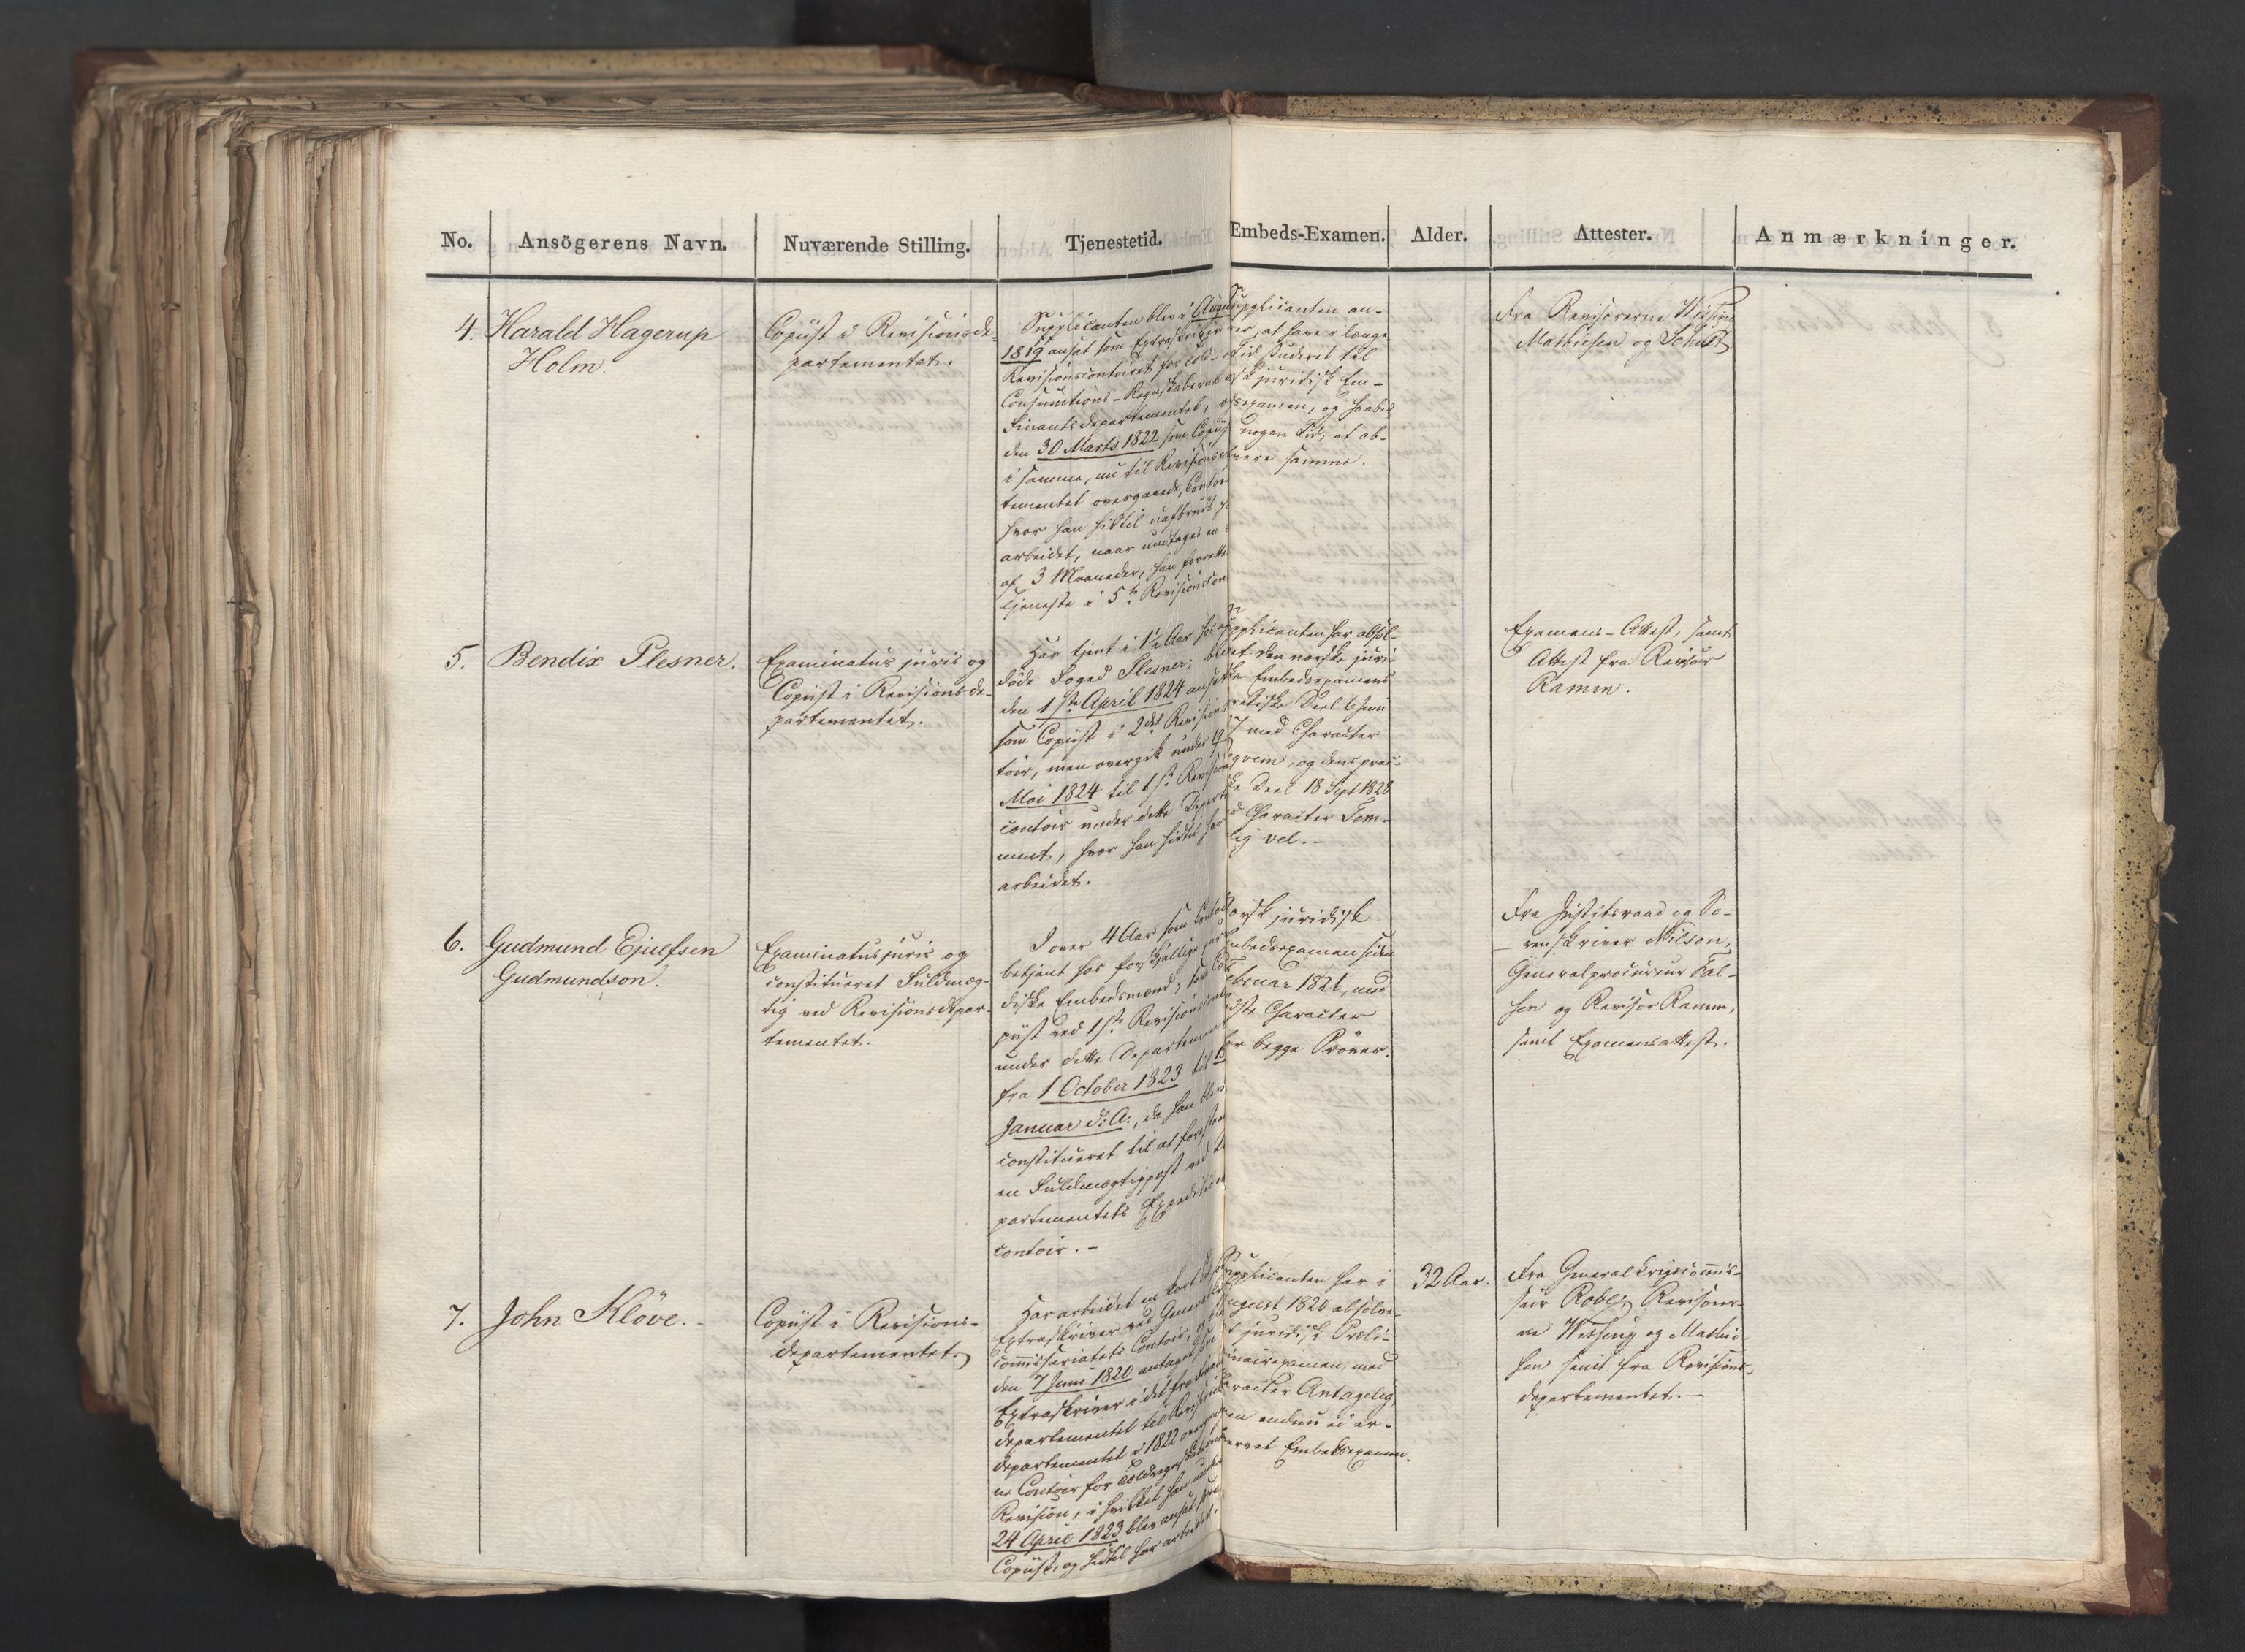 No. Ansögerens Navn. Nuværende Stilling. Tjenestetid. Embeds-Examen. Alder. Attester. Anmærkninger.
4. Harald Hagerup
Holm.
Copiist i Revisionsde-
partementet.
Supplicanten blev i
1819 ansat som Extraskriver
Revisionscontoiret for Told-
Consumtions-Regnskaberne
Finantsdepartementet,
den 30 Marts 1822 som Copiist
i samme, nu til Revisions
tementet overgaaede, Contoir
hvor han hidtil uafbrudt
arbeidet, naar undtages en
af 3 Maaneder, han forrettet
Tjeneste i 5te Revisionscon
Supplicanten an-
at have i længe-
Tid studeret til
juridisk Em-
examen, og haaber
nogen Tid, at ab-
vere samme.
Fra Revisorerne
Mathiesen og Schult
5. Bendix Plesner.
Examinatus juris og
Copiist i Revisionsde-
partementet.
Har tjent i 1½ Aar hos
Foged Plesner; blev
den 1ste April 1824 ansat
som Copiist i 2det Revisions
toir, men overgik under 19
Mai 1824 til 1ste Revisions
contoir under dette Departe
ment, hvor han hidtil har
arbeidet.
Supplicanten har absol-
den norske juri-
Embedsexamens
retiske Deel
7 med Character
og dens prac-
Deel 18 Sept 1828
Character Tem-
lig vel.-
Examens-Attest, samt
Attest fra Revisor
Ramm.
6. Gudmund Ejulfsen
Gudmundson.
Examinatus juris og
constitueret Fuldmæg-
tig ved Revisionsdepar-
tementet.
I over 4 Aar som Contoir
betjent hos forskjellige juri
diske Embedsmænd, som Co
piist ved 1ste Revisionscontoir
under dette Departement
fra 1 October 1823 til 15
Januar d: A:, da han blev
constitueret til at forestaae
en Fuldmægtigpost ved
partementets Expeditions
contoir.-
orsk juridisk
mbedsexamen siden
ebruar 1821, med
dste Character
for begge Prøver.
Fra Justitsraad og So-
renskriver Nilson,
Generalprocureur Fal-
sen og Revisor Ramm,
samt Examensattest.
7. John Klöve.
Copiist i Revisions-
departementet.
Har arbeidet en kort Tid
Extraskriver ved General
commissariatets Contoir,
den 7 Juni 1820 antaget
Extraskriver i det fra
departementet til Revisions
departementet i 1822
ne Contoir for Toldregnskabernes
Revision, i hvilket han under
24 April 1823 blev ansat som
Copiist, og hidtil har arbeidet.
Supplicanten har i
ugust 1820 absolve-
t juridisk Præli-
inairexamen, med
racter Antagelig,
en endnu ei er-
ervet Embedsexamen.
32 Aar.
Fra Generalkrigscommis-
sair Robly, Revisorer-
ne og Mathie-
sen samt fra Revisions-
departementet.-